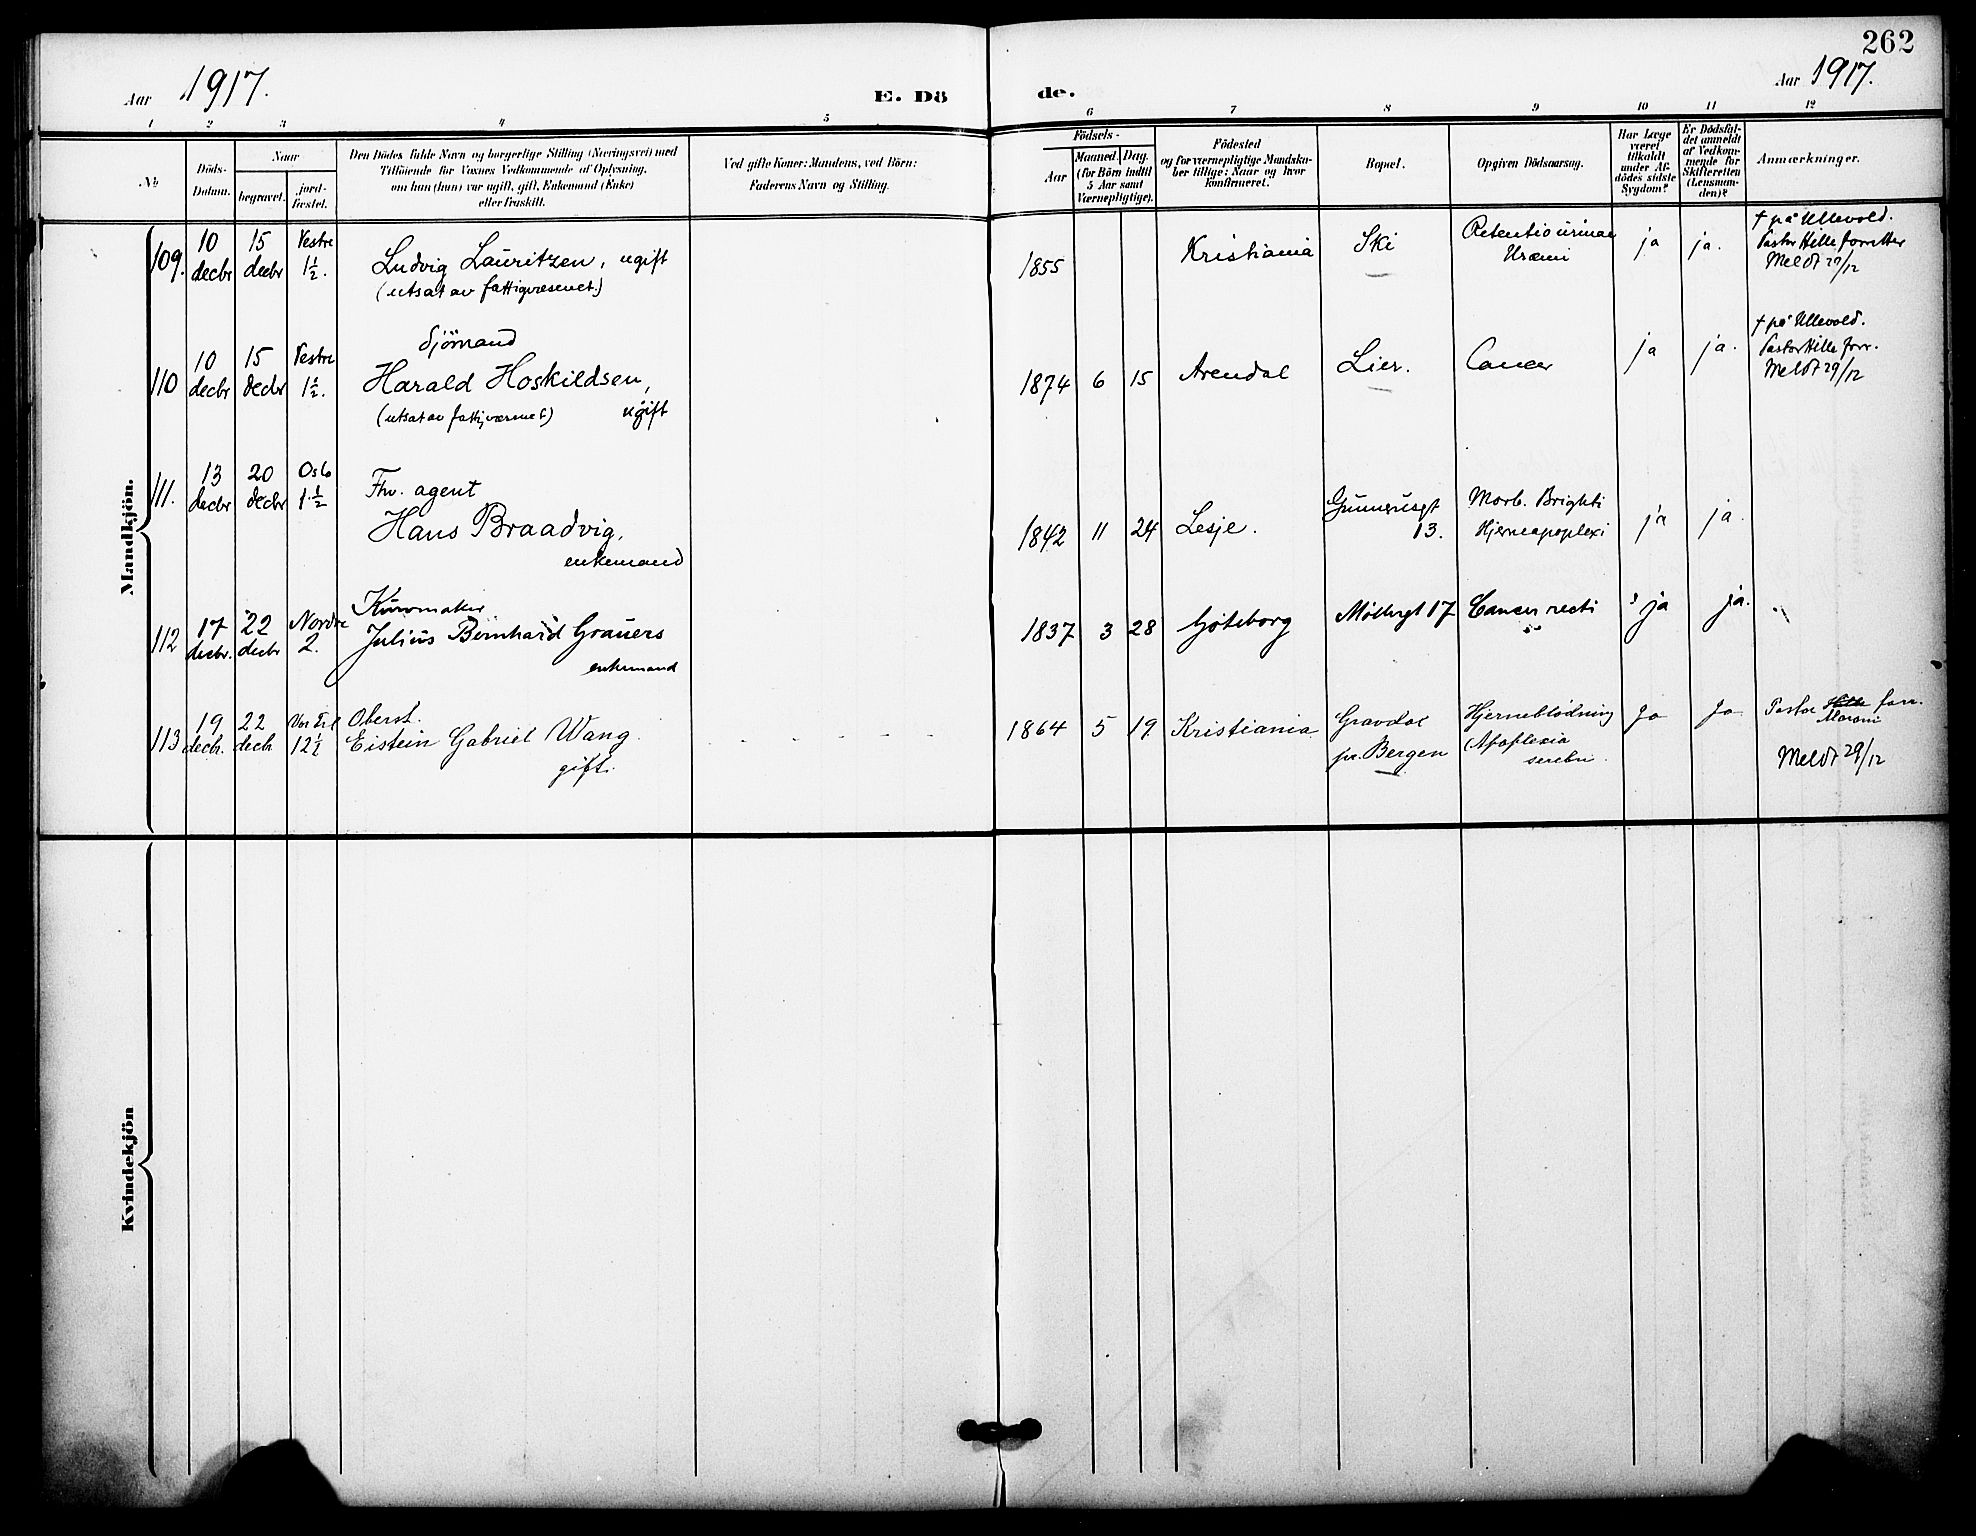 262
Aar 1917. E. Dö de. Aar 1917.
1 2 3 4 5 6 7 8 9 10 11 12
No
Döds-
Datum.
Naar
begravet.
jord-
fæstet.
Den Dödes fulde Navn og borgerlige Stilling (Næringsvei) med
Tilföiende for Voxnes Vedkommende af Oplysning,
om han (hun) var ugift, gift, Enkemand (Enke)
eller fraskilt.
Ved gifte Koner: Mandens, ved Börn:
Faderens Navn og Stilling.
Födsels-
Aar
Maaned. Dag.
(for Börn indtil
5 Aar samt
Værnepligtige).
Födested
og for værnepligtige Mandska-
ber tillige: Naar og hvor
konfirmeret.
Bopæl.
Opgiven Dödsaarsag.
Har Læge
været
tilkaldt
under Af-
dödes sidste
Sygdom?
Er Dödsfal-
det anmeldt
af Vedkom-
mende for
Skifteretten
(Lensman-
den)?
Anmærkninger.
Mandkjön.
109.
10
decbr
15
decbr
Vestre
1½.
Ludvig Lauritzen, ugift
(utsat av fattigvæsenet.)
1855
Kristiania
Ski
Retentio urinae
Uræmi
ja
ja.
† på Ullevold.
Pastor Hille forretter
Meldt 29/12
110
10
decbr
15
decbr
Vestre
1½.
Sjömand
Harald Hoskildsen,
ugift
1874 6 15
Arendal
Lier.
Cancer
ja
ja.
† på Ullevold.
Pastor Hille forr.
Meldt 29/12
111.
13
decbr
20
decbr
Oslo
1½
Fhv. agent
Hans Braadvig,
enkemand
1842 11 24
Lesje.
Gunnerusgt
13.
Morb. Brighti
Hjerneapoplexi
ja
ja.
112
17
decbr.
22
decbr
Nordre
2.
Kurvmaker
Julius Bernhard Grauers
enkemand
1837 3 28
Göteborg
Möllergt 17
Cancer recti
ja
ja.
113
19
decbr.
22
decb
Vor Frl
12½
Oberst.
Eistein Gabriel Wang
gift.
1864 5 19
Kristiania
Gravdal
pr. Bergen
Hjerneblödning
(Apoplexia
serebri.
Ja
Ja
Pastor Hille forr.
Meldt 29/12
Kvindekjön